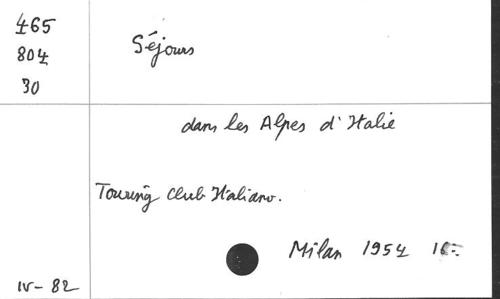 465
804
30
Séjours
dans les Alpes d'Italie
Touring Club Italiano.
Milan 1954
IV-82